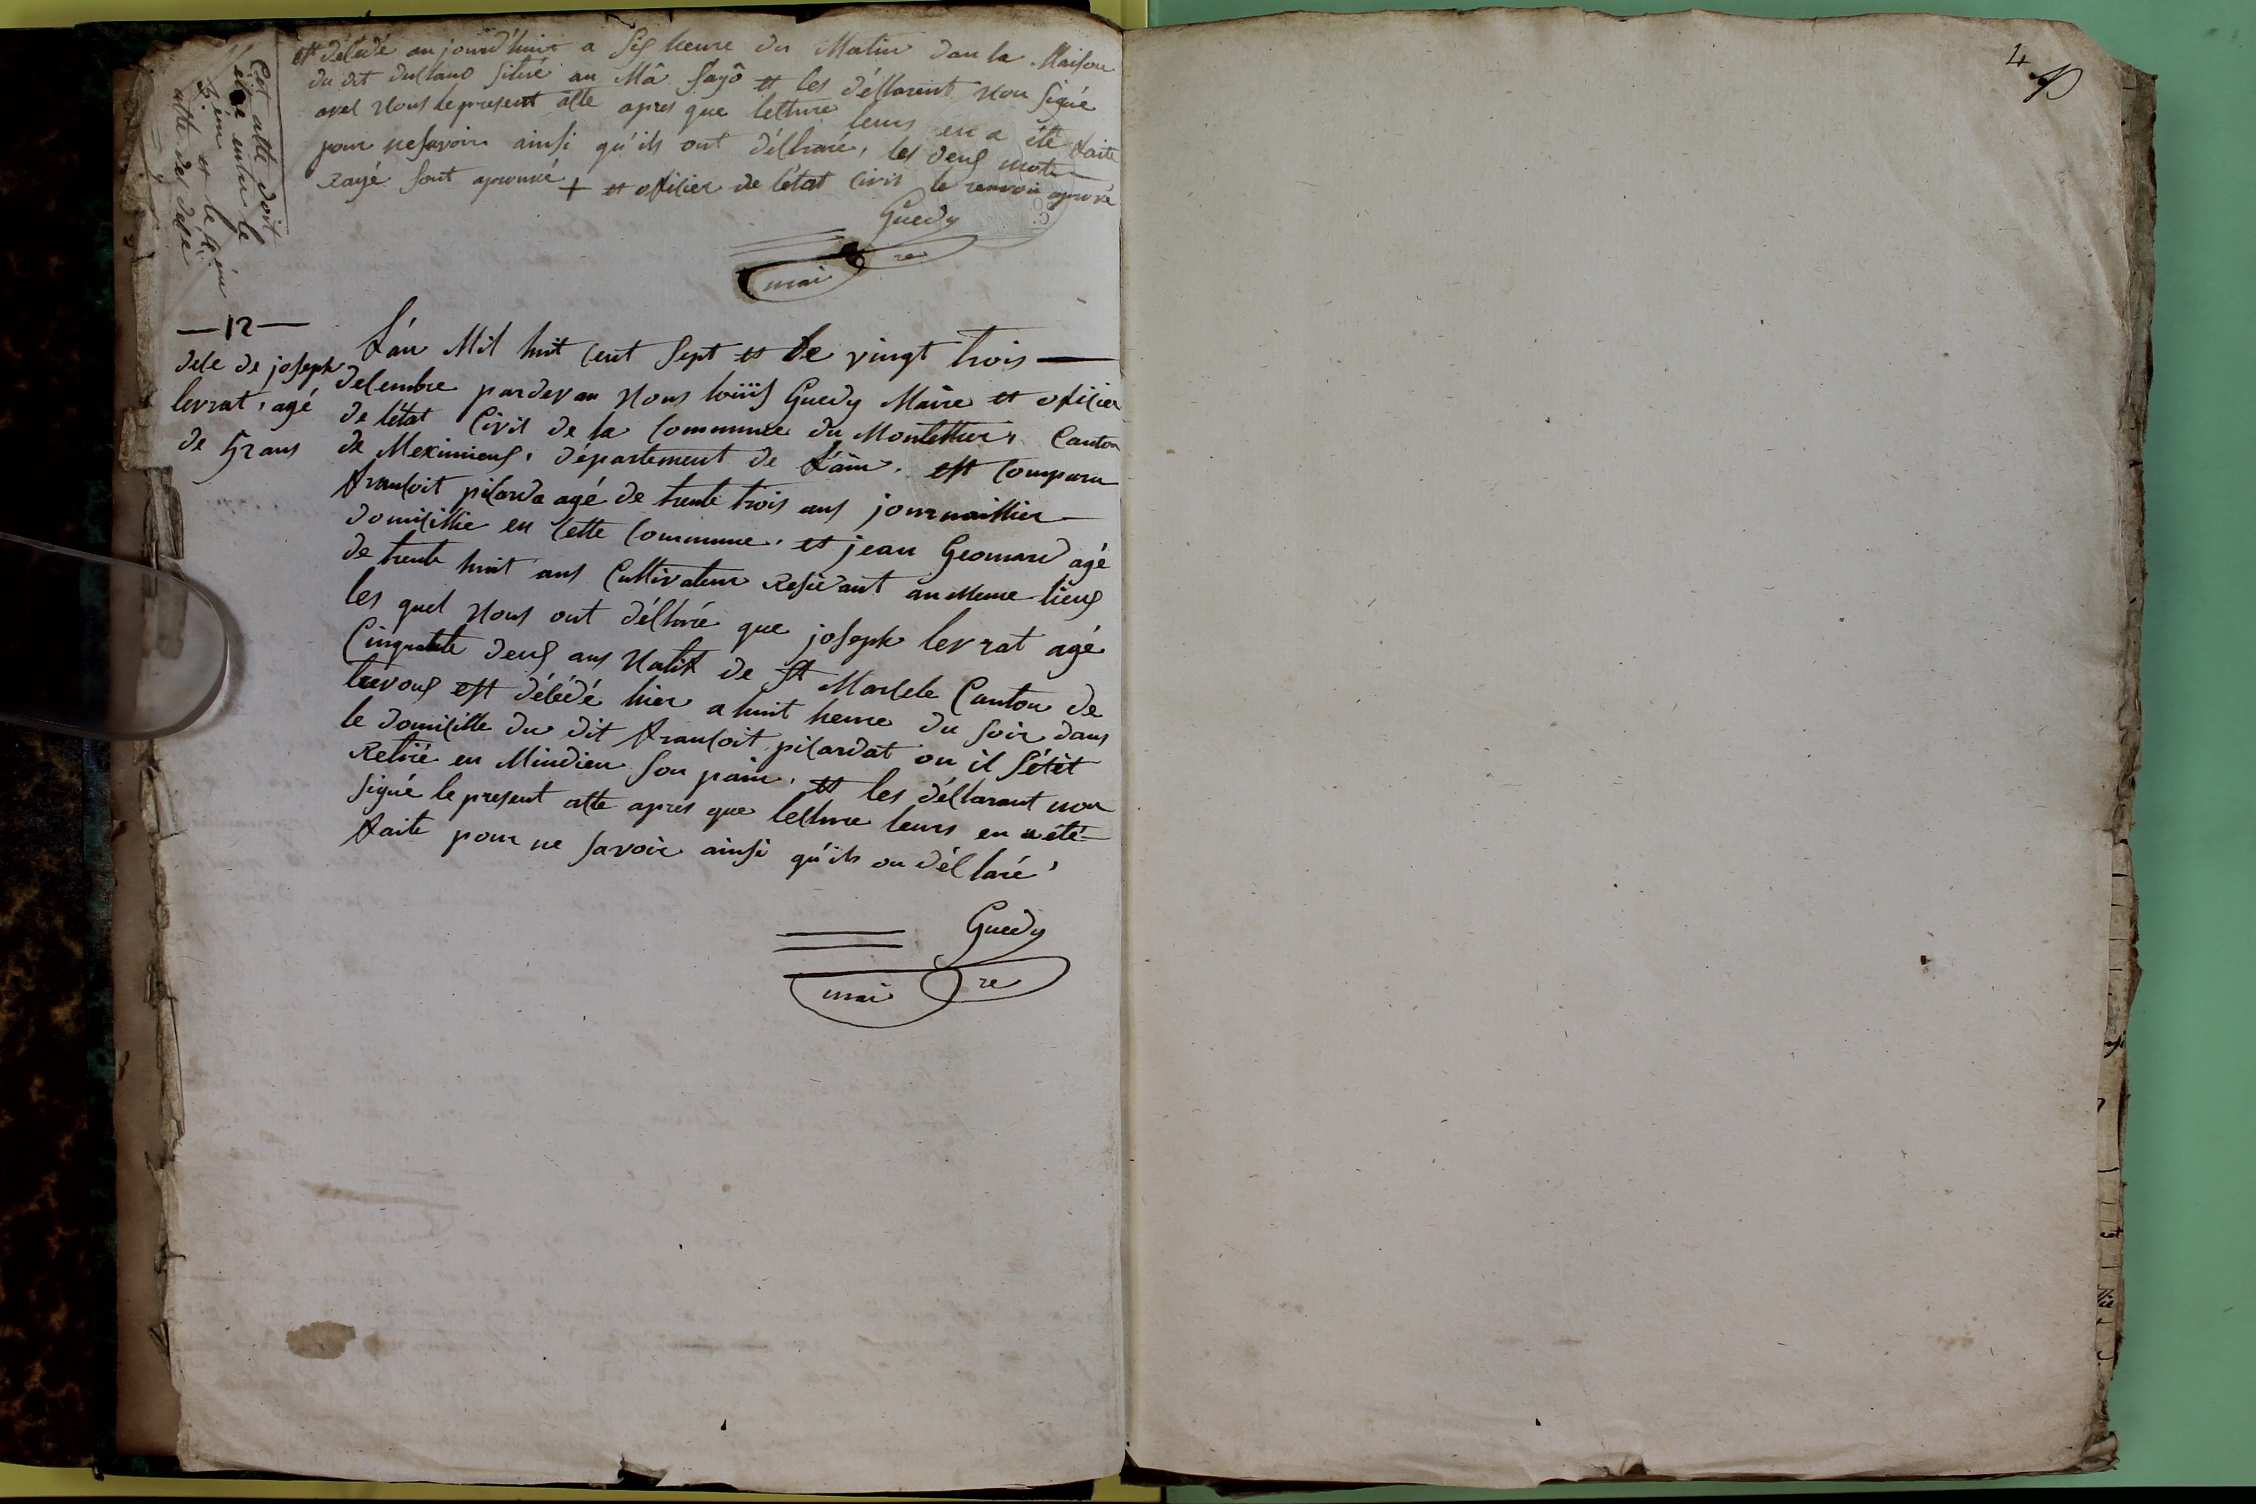 est décedé aujourd'huit a six heure du Matin dan la Maison
du dit dulland situé au Mâ fayô et les déclarent Non signé
avec Nous le present acte apres que lecture leurs en a été faite
pour ne savoir ainsi qu'ils ont délharé, les deux mots
rayé sont aprouvé + et oficier de l'état Civil le renvoi aprové
Guedy
mai re
Cet acte doit
être entre le
3ième et le 4ième
acte des décé
4
— 12 —
dece de joseph
levrat, agé
de 52 ans
L'án Mil huit cent sept et le vingt trois —
decembre pardevan Nous loüis Guedy Maire et oficier
de létat Civil de la Commune du Montellier, Canton
de Meximieux, département de L'ain, est Comparu
francoit picarda agé de trente trois ans journallier
domicillié en cette Commune, et jean Geomard agé
de trente huit ans Cultivateur Residant au Meme lieux
les quel Nous ont délharé que joseph levrat agé
Cinquante deux ans Natif de st Marcele Canton de
trevoux est décédé hier a huit heure du soir dans
le domicille du dit francoit picardat ou il s'étèt
Retiré en Mindien son pain, et les déclarant non
signé le present acte apres que lecture leurs en a été
faite pour ne savoir ainsi qu'ils on déclaré,
Guedy
mai re